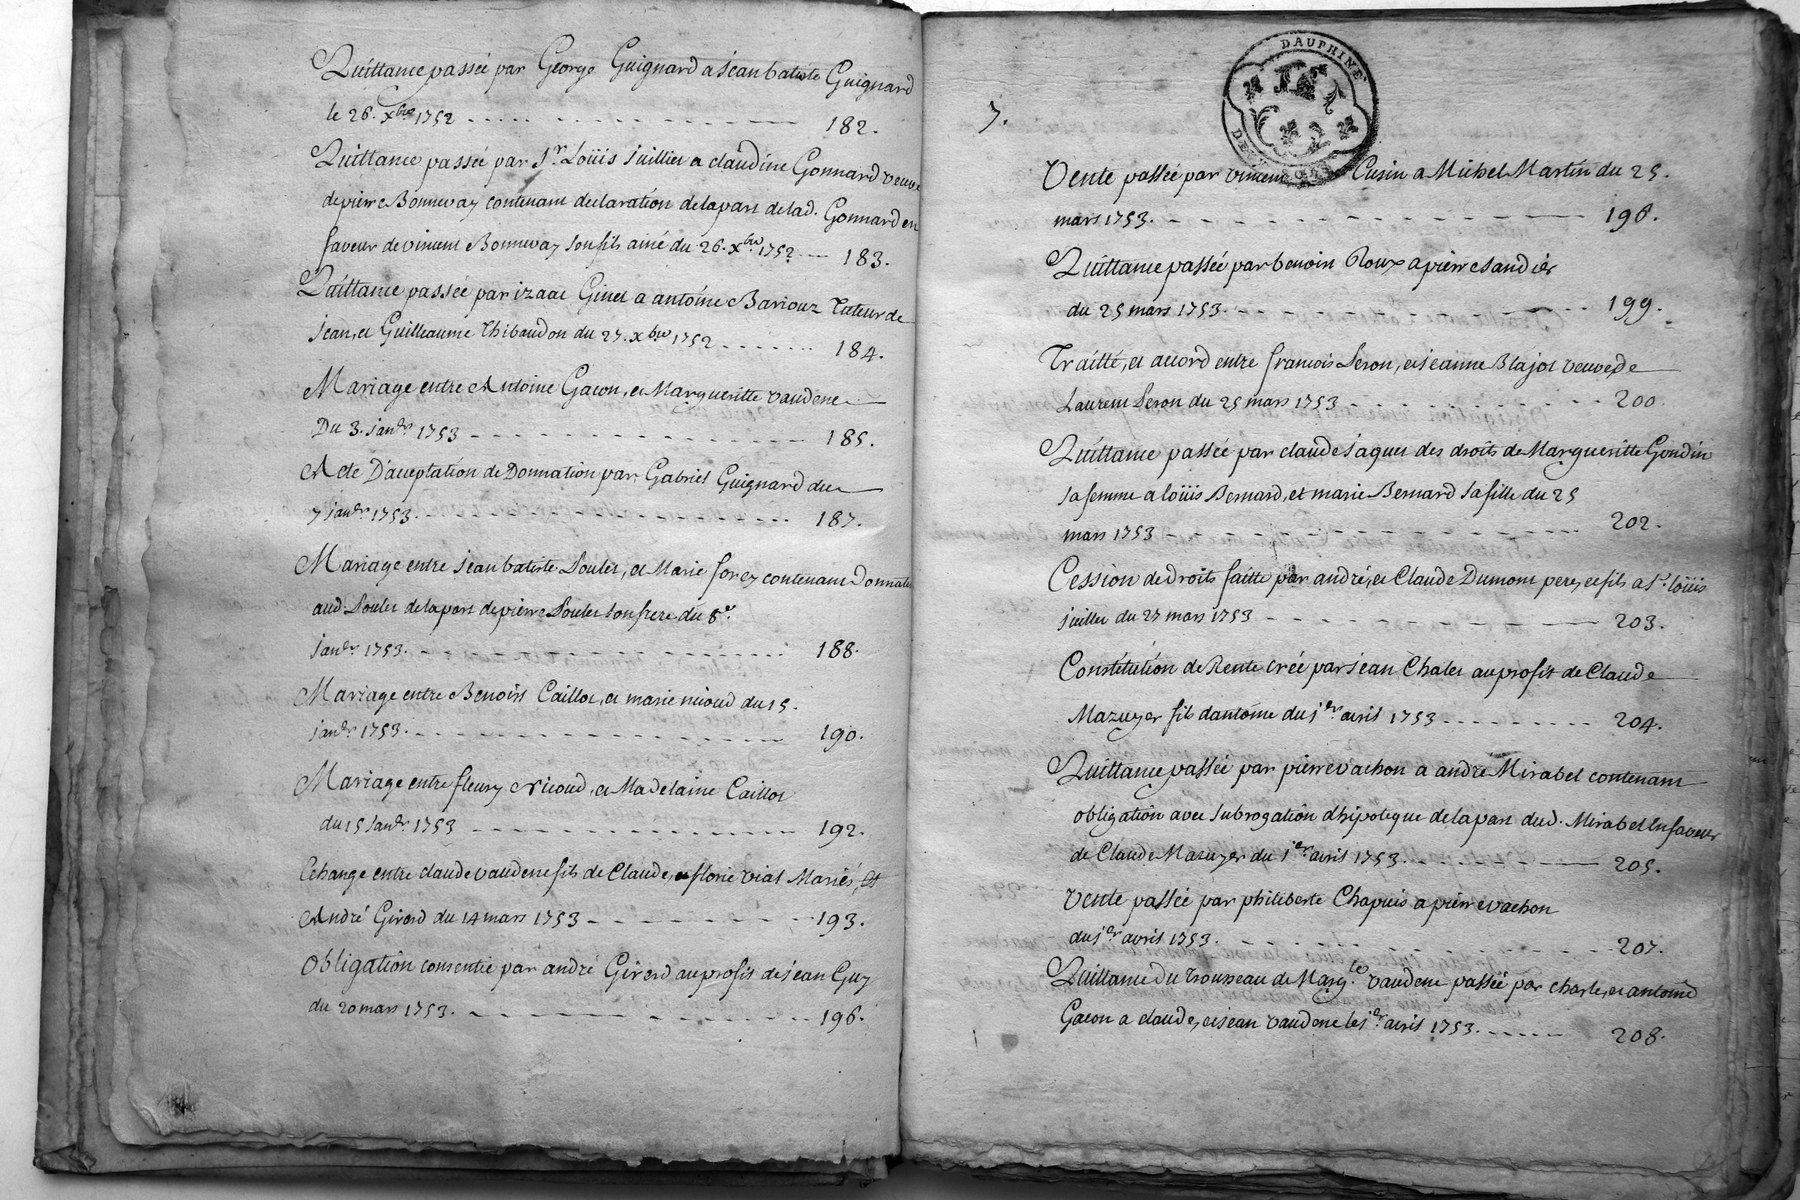 Quittance passée par George Guignard a jean batiste Guignard
le 26. xbre 1752 182.
Quittance passée par Sr. Loüis juillier a claudine Gonnard veuve
de pierre Bonnevay contenant declaration de la part de lad. Gonnard en
faveur de vincent Bonnevay son fils ainé du 26. xbre 1752 183.
Quittance passée par izaac Ginet a antoine Bariouz Tuteur de
jean, et Guilleaume Thibaudon du 27. xbre 1752 184.
Mariage entre Antoine Gacon, et Margueritte vaudene
Du 3. janer 1753 185.
Acte D'aceptation de Donnation par Gabriel Guignard du
7 janer 1753. 187.
Mariage entre jean batiste Soulet, et Marie forey contenant Donnation
aud. Soulet de la part de pierre Soulet son frere du 8e.
janer 1753. 188.
Mariage entre Benoist Caillot, et marie nicoud du 15.
janer 1753. 190.
Mariage entre fleury Nicoud, et Madelaine Caillot
du 15 janer 1753 192.
Echange entre claude vaudene fils de Claude, et florie vial Mariés, et
André Girerd du 14 mars 1753 193.
Obligation consentie par andré Girerd au profit de jean Guy
du 20 mars 1753. 196.
DAUPHINE
7.
Vente passée par vincent Cusin a Michel Martin du 25.
mars 1753. 198.
Quittance passée par benoin Roux a pierre sandier
du 25 mars 1753. 199.
Traitté, et accord entre francois Seron, et jeanne Blajot veuve de
Laurent Seron du 25 mars 1753 200.
Quittance passée par claude jaquet des droits de Margueritte Gondin
sa femme a loüis Bernard, et marie Bernard sa fille du 25
mars 1753 202.
Cession de droits faitte par andré, et Claude Dumont pere, et fils a Sr. loüis
juillier du 27 mars 1753 203.
Constitution de Rente créé par jean Chalet au profit de Claude
Mazuyer fils d'antoine du 1er. avril 1753 204.
Quittance passée par pierre vachon a andre Mirabel contenant
obligation avec subrogation d'hipoteque de la part dud. Mirabel En faveur
de Claude Mazuyer du 1er. avril 1753. 205.
Vente passée par philiberte Chapuis a pierre vachon
du 1er avril 1753. 207.
Quittance Du Trousseau de Margte. vaudene passée par charle, et antoine
Gacon a claude, et jean vaudene le 1er. avril 1753. 208.